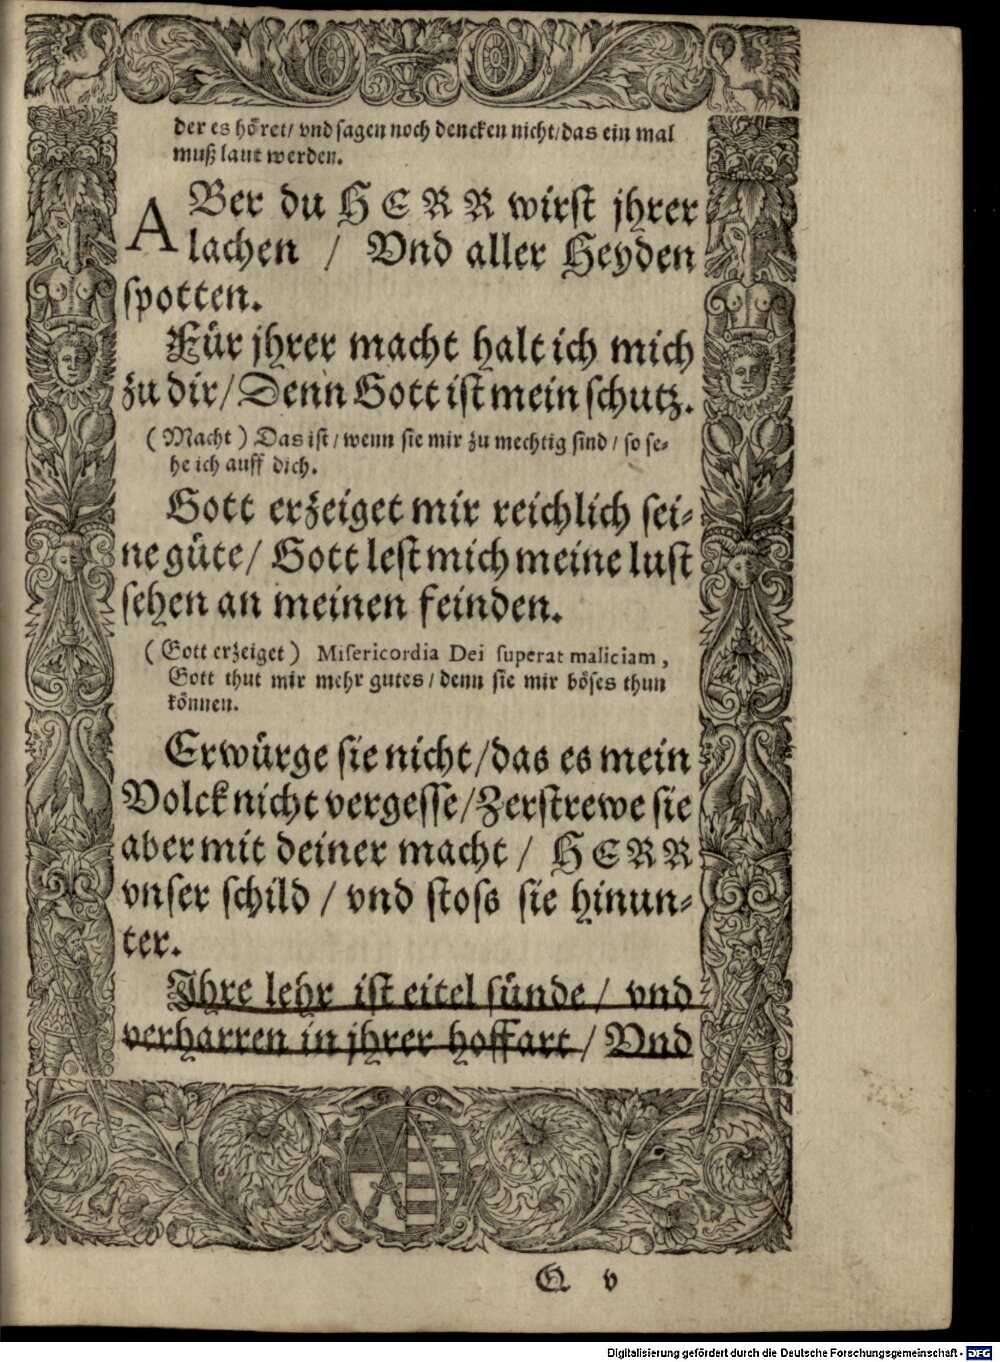 der es höret/ vnd sagen noch dencken nicht/das ein mal
muß laut werden.
ABer du HERR wirst jhrer
lachen / Vnd aller Heyden
spotten.
Für jhrer macht halt ich mich
zu dir/Denn Gott ist mein schutz.
(Macht) Das ist/wenn sie mir zu mechtig sind/so se-
he ich auff dich.
Gott erzeiget mir reichlich sei-
ne güte/ Gott lest mich meine lust
sehen an meinen feinden.
(Gott erzeiget) Misericordia Dei superat maliciam,
Gott thut mir mehr gutes/denn sie mir böses thun
können.
Erwürge sie nicht/das es mein
Volck nicht vergesse/Zerstrewe sie
aber mit deiner macht/ HERR
vnser schild / vnd stoss sie hinun-
ter.
Ihre lehr ist eitel sünde/ vnd
verharren in jhrer hoffart/ Vnd
Q v
Digitalisierung gefördert durch die Deutsche Forschungsgemeinschaft - DFG